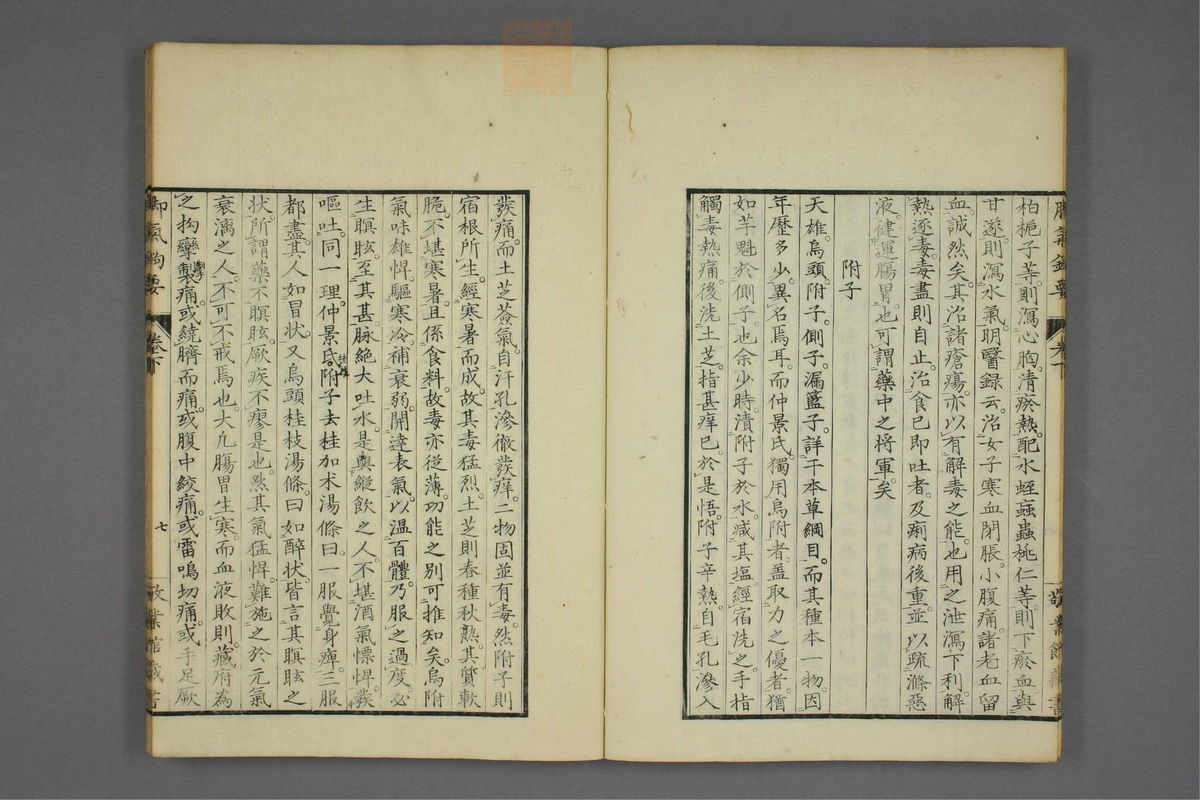 柏梔子等則瀉心胸清瘀熱配水蛭䗪蟲桃仁等則下瘀血與
甘遂則瀉水氣明醫録云治女子寒血閉脹小腹痛諸老血留
血誠然矣其治諸瘡瘍亦以有解毒之能也用之泄瀉下利解
熱逐毒毒盡則自止治食已即吐者及痢病後重並以疏滌惡
液健運腸胃也可謂藥中之將軍矣
附子
天雄烏頭附子側子漏籃子詳于本草綱目而其種本一物因
年歷多少異名焉耳而仲景氏獨用烏附者盖取力之優者猶
如芋魁於側子也余少時漬附子於水減其塩經宿洗之手指
觸毒熱痛後洗土芝指甚痒已於是悟附子辛熱自毛孔滲入
發痛而土芝薟氣自汗孔滲徹發痒二物固並有毒然附子則
宿根所生經寒暑而成故其毒猛烈土芝則春種秋熟其質軟
脆不堪寒暑且係食料故毒亦従薄功能之別可推知矣烏附
氣味雄悍驅寒冷補衰弱開達表氣以温百體乃服之過度必
生瞑眩至其甚脉絶大吐水是與縱飲之人不堪酒氣慓悍發
嘔吐同一理仲景氏附子去桂加术湯條曰一服覺身痺三服
都盡其人如冒状又烏頭桂枝湯條曰如醉状皆言其瞑眩之
状所謂藥不瞑眩厥疾不瘳是也然其氣猛悍難施之於元氣
衰漓之人不可不戒焉也大凡腸胃生寒而血液敗則藏府為
之拘攣製痛或繞臍而痛或腹中絞痛或雷鳴切痛或手足厥
脚氣鉤要
卷下
七
敬業館藏書